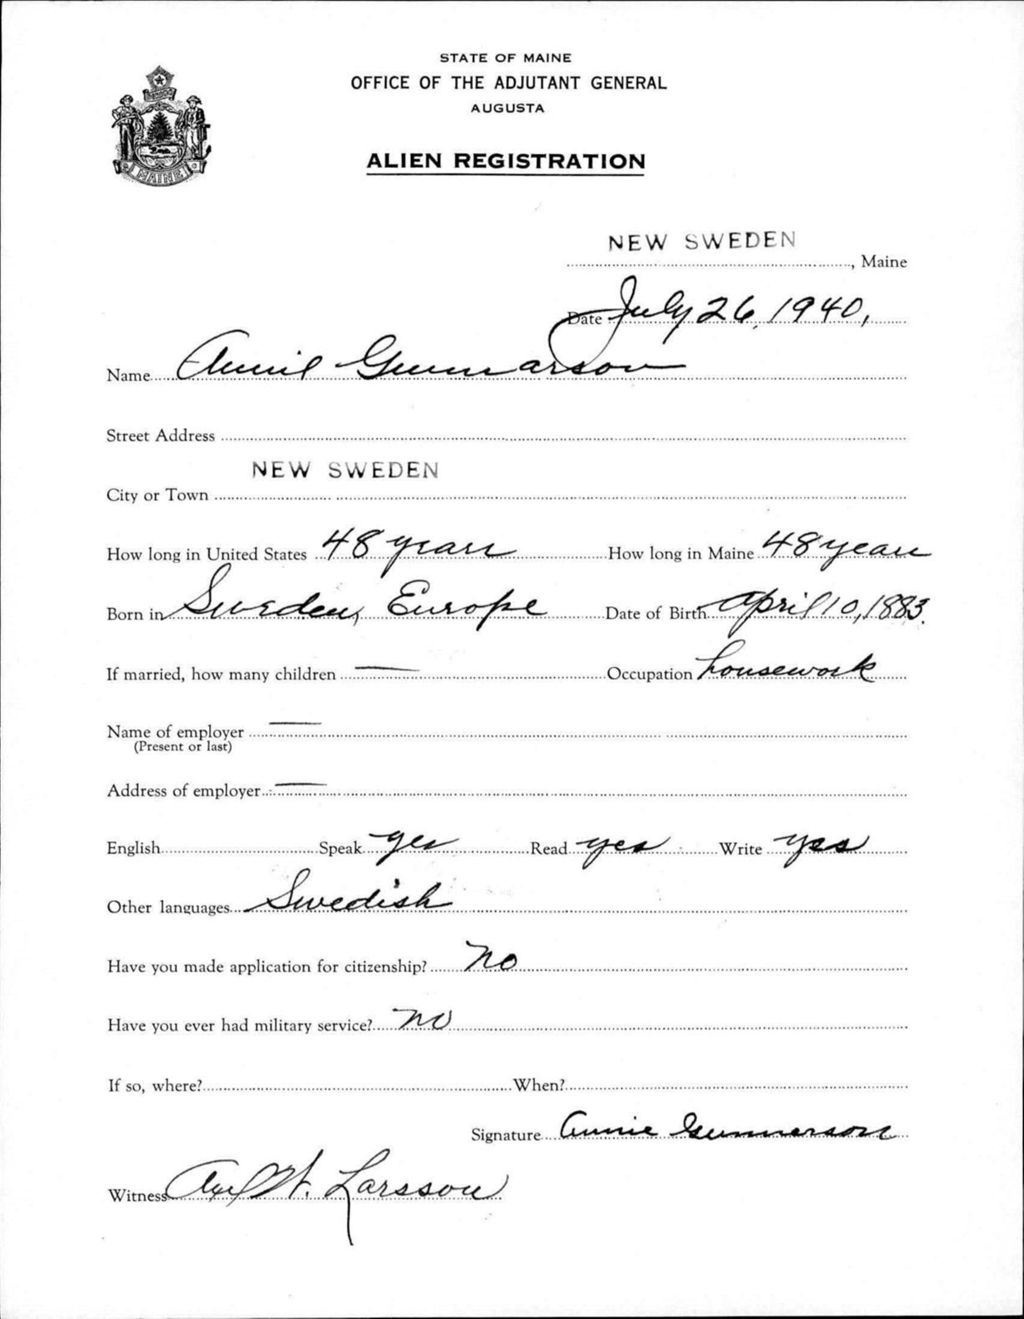 STATE OF MAINE
OFFICE OF THE ADJUTANT GENERAL
AUGUSTA
ALIEN REGISTRATION
MAINE
NEW SWEDEN, Maine
Date July 26, 1940,
Name Annie Gunnarson
Street Address
City or Town NEW SWEDEN
How long in United States 48 years How long in Maine 48 years
Born in Sweden, Europe Date of Birth April 10, 1883.
If married, how many children — Occupation housework
Name of employer —
(Present or last)
Address of employer —
English Speak yes Read yes Write yes
Other languages Swedish
Have you made application for citizenship? No
Have you ever had military service? no
If so, where? When?
Signature Annie Gunnerson
Witness Axel W. Larsson